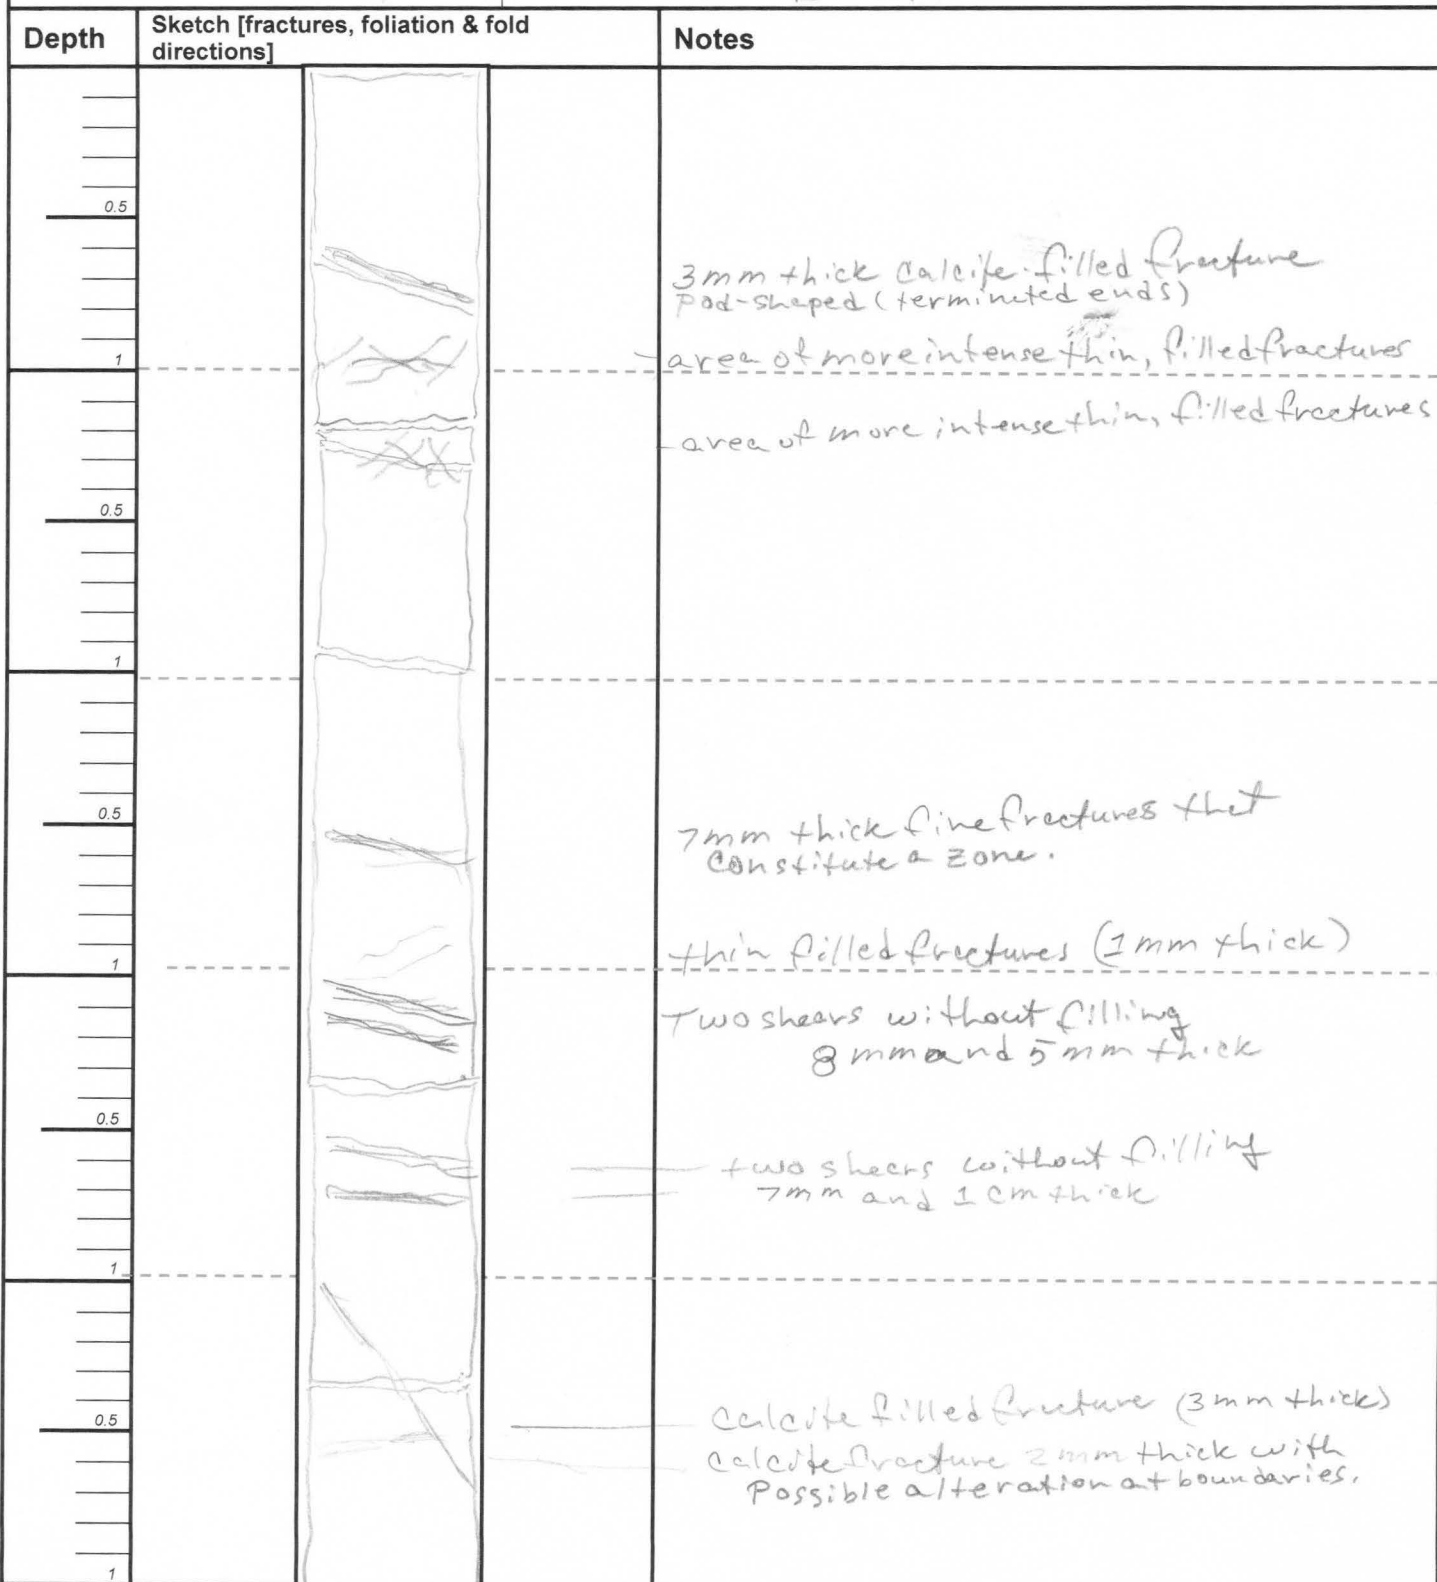 Depth
Sketch [fractures, foliation & fold
directions]
Notes
0.5
3mm thick calcite-filled fracture
pod-shaped (terminated ends)
- area of more intense thin, filled fractures
1
- area of more intense thin, filled fractures
0.5
1
0.5
7mm thick fine fractures that
constitute a zone.
thin filled fractures (1mm thick)
1
Two shears without filling
8 mm and 5 mm thick
0.5
two shears without filling
7mm and 1 cm thick
1
calcite filled fracture (3 mm thick)
0.5
calcite fracture 2 mm thick with
Possible alteration at boundaries.
1